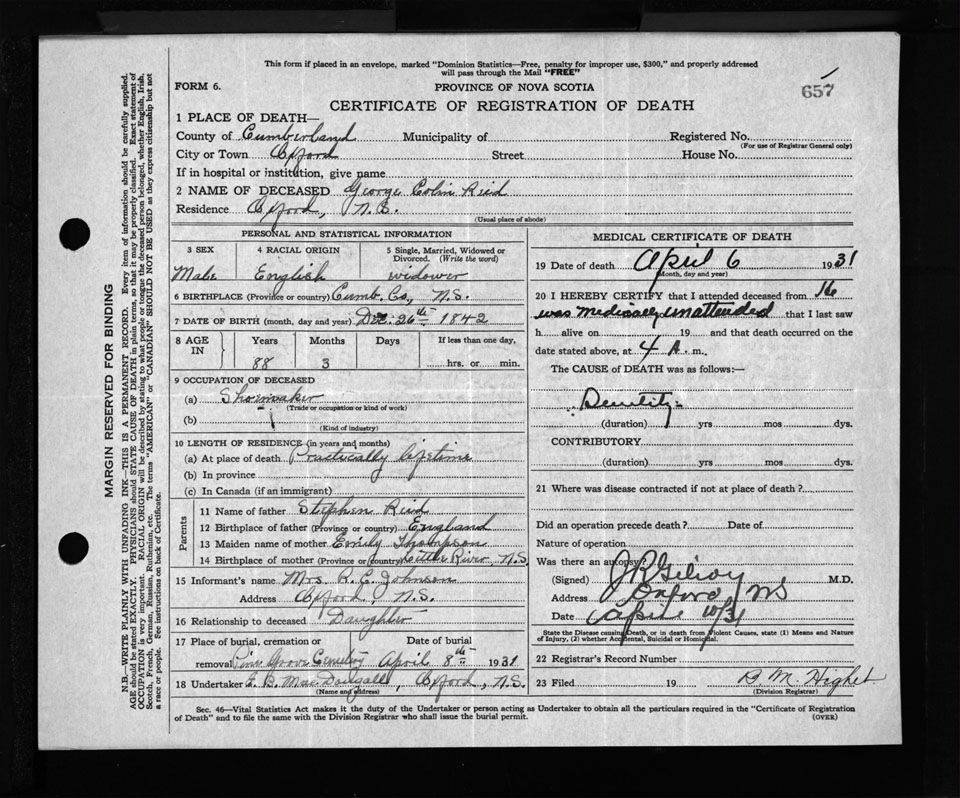 This form if placed in an envelope, marked "Dominion Statistics—Free, penalty for improper use, $300," and properly addressed
will pass through the Mail "FREE"
FORM 6.
PROVINCE OF NOVA SCOTIA
657
CERTIFICATE OF REGISTRATION OF DEATH
1 PLACE OF DEATH—
County of Cumberland Municipality of Registered No.
(For use of Registrar General only)
City or Town Oxford Street House No.
If in hospital or institution, give name
2 NAME OF DECEASED George Colin Reid
Residence Oxford, N.S.
(Usual place of abode)
PERSONAL AND STATISTICAL INFORMATION
3 SEX 4 RACIAL ORIGIN 5 Single, Married, Widowed or Divorced. (Write the word)
Male English widower
6 BIRTHPLACE (Province or country) Cumb. Co., N.S.
7 DATE OF BIRTH (month, day and year) Dec. 26th 1842
8 AGE IN Years Months Days If less than one day,
88 3 hrs. or min.
9 OCCUPATION OF DECEASED
(a) Shoemaker
(Trade or occupation or kind of work)
(b)
(Kind of industry)
10 LENGTH OF RESIDENCE (in years and months)
(a) At place of death Practically lifetime
(b) In province
(c) In Canada (if an immigrant)
Parents
11 Name of father Stephen Reid
12 Birthplace of father (Province or country) England
13 Maiden name of mother Emily Thompson
14 Birthplace of mother (Province or country) Little River, N.S.
15 Informant's name Mrs. R. E. Johnson
Address Oxford, N.S.
16 Relationship to deceased Daughter
17 Place of burial, cremation or Date of burial
removal Pine Grove Cemetery April 8th 1931
18 Undertaker E. B. MacDougall, Oxford, N.S.
(Name and address)
MEDICAL CERTIFICATE OF DEATH
19 Date of death April 6 1931
(Month, day and year)
20 I HEREBY CERTIFY that I attended deceased from 16
was medically unattended that I last saw
h alive on 19 and that death occurred on
date stated above, at 4 A. m.
The CAUSE of DEATH was as follows:—
(duration) yrs mos dys.
CONTRIBUTORY
(duration) yrs mos dys.
21 Where was disease contracted if not at place of death?
Did an operation precede death? Date of
Nature of operation
Was there an autopsy?
(Signed) J R Gilroy M.D.
Address Oxford NS
Date April 10/31
State the Disease causing Death, or in death from Violent Causes, state (1) Means and Nature
of Injury, (2) whether Accidental, Suicidal or Homicidal.
22 Registrar's Record Number
23 Filed 19 B. M. Highet
(Division Registrar)
Sec. 46—Vital Statistics Act makes it the duty of the Undertaker or person acting as Undertaker to obtain all the particulars required in the "Certificate of Registration
of Death" and to file the same with the Division Registrar who shall issue the burial permit. (OVER)
MARGIN RESERVED FOR BINDING
N.B.—WRITE PLAINLY WITH UNFADING INK—THIS IS A PERMANENT RECORD. Every item of information should be carefully supplied.
AGE should be stated EXACTLY. PHYSICIANS should STATE CAUSE OF DEATH in plain terms, so that it may be properly classified. Exact statement of
OCCUPATION is very important. RACIAL ORIGIN will be described by stating to what people or tongue the deceased person belonged, whether English, Irish,
Scotch, French, German, Russian, Ruthenian, etc. The terms "AMERICAN" or "CANADIAN" SHOULD NOT BE USED as they express citizenship but not
a race or people. See instructions on back of Certificate.